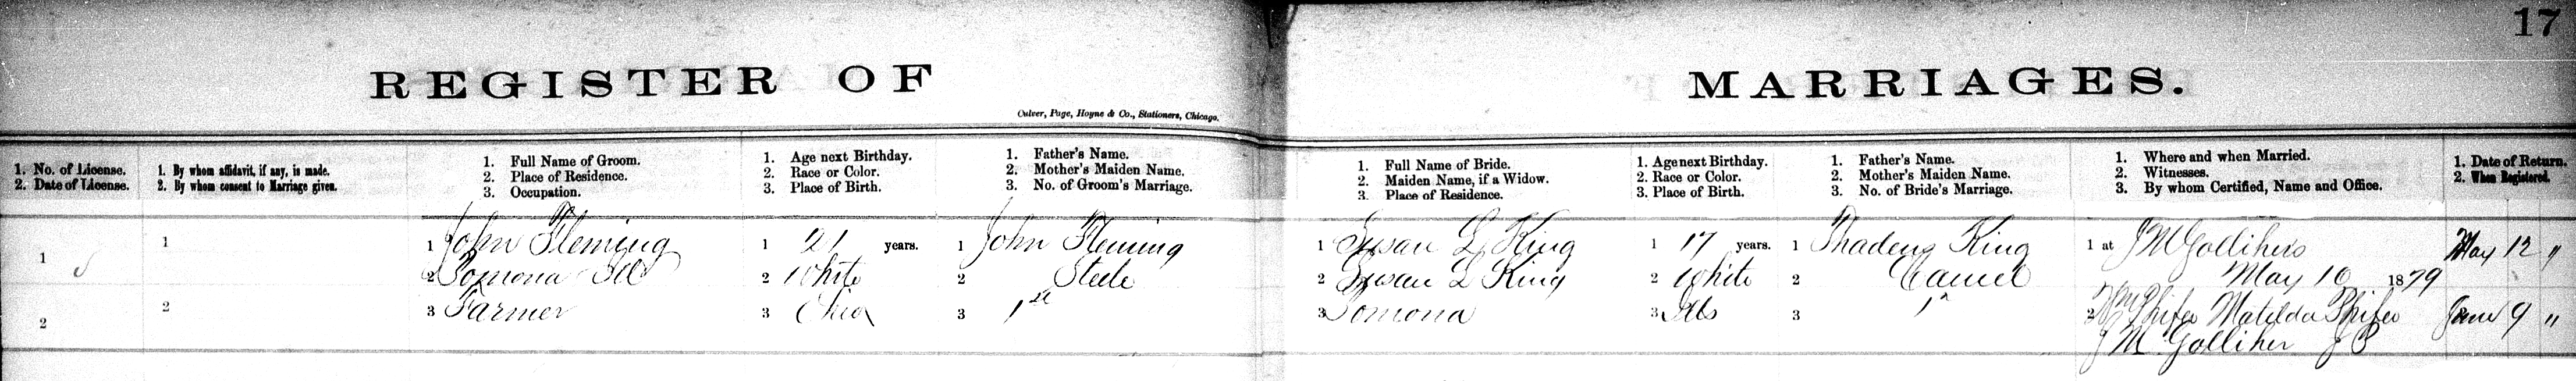 17
REGISTER OF MARRIAGES.
Culver, Page, Hoyne & Co., Stationers, Chicago.
1. No. of License.
2. Date of License.
1. By whom affidavit, if any, is made.
2. By whom consent to Marriage given.
1. Full Name of Groom.
2. Place of Residence.
3. Occupation.
1. Age next Birthday.
2. Race or Color.
3. Place of Birth.
1. Father's Name.
2. Mother's Maiden Name.
3. No. of Groom's Marriage.
1. Full Name of Bride.
2. Maiden Name, if a Widow.
3. Place of Residence.
1. Age next Birthday.
2. Race or Color.
3. Place of Birth.
1. Father's Name.
2. Mother's Maiden Name.
3. No. of Bride's Marriage.
1. Where and when Married.
2. Witnesses.
3. By whom Certified, Name and Office.
1. Date of Return.
2. When Registered.
1
2
1
2
1 John Fleming
2 Pomona Ill
3 Farmer
1 21 years.
2 White
3 Ohio
1 John Fleming
2 Steele
3 1st
1 Susan L King
2 Susan L King
3 Pomona
1 17 years.
2 White
3 Ills
1 Thadeus King
2
3 1"
1 at J M Gollihers
May 10 1879
2 Wm Phifer Matilda Phifer
J M Golliher J P
May 12 "
June 9 "